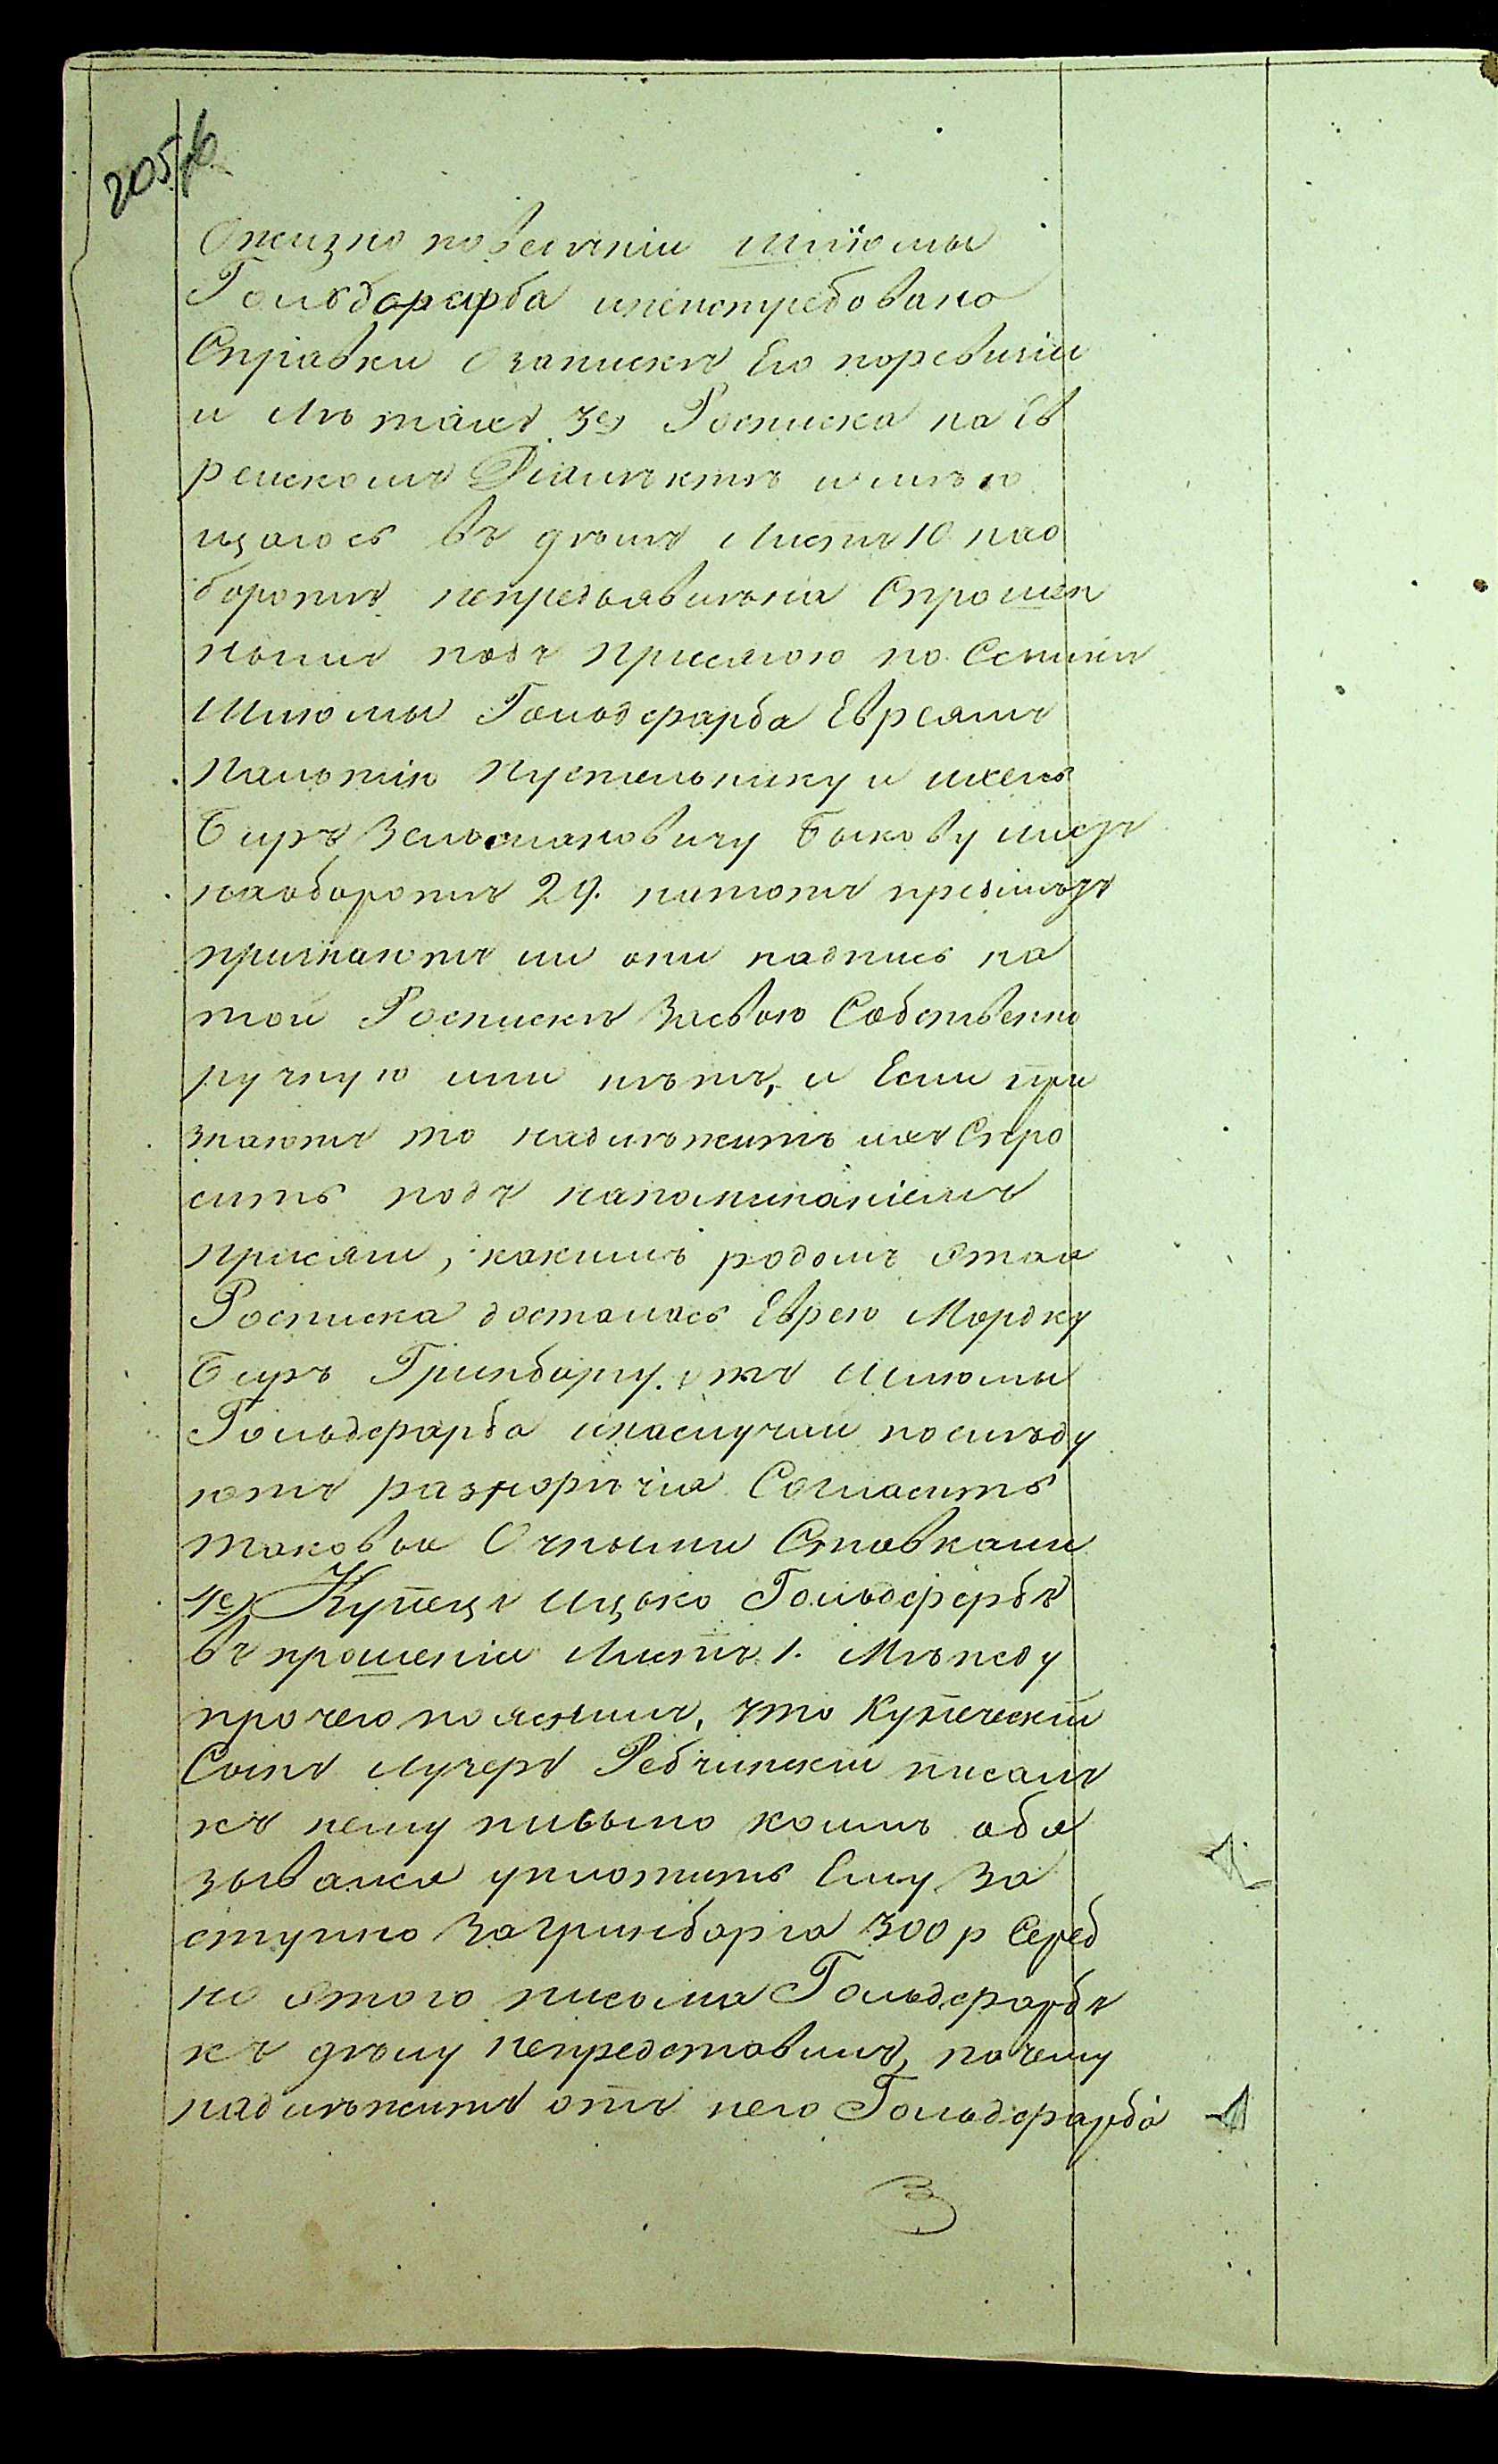 205 об
Ожизно поведѣніи Шлiомы
Гольдфарба инеистребовано
Справки Озаписки Его поревизіи
и Лѣтахъ. 3е) Росписка на Ев
рейскомъ Діалѣктѣ имѣю
щаюсь въ дѣлѣ Листъ 10 нао
боротѣ непредъявилѣна Спрошен
нымъ подъ присягою по Ссылки
Шлюмы Гольдфарба Евреямъ
Пальтію Пустильнику и ихель
Беръ Зельмановичу Быкову Листъ
наоборотѣ 29. натотъ предмѣтъ
признаютъ ли они надпись на
той Росписки Засвою Собственно
ручную или нѣтъ, и Если при
знаютъ то надлѣжитъ ихъ Спро
сить подъ напоминаніемъ
присяги, какимъ родомъ Этая
Росписка досталась Еврею Мордку
Беръ Гринбаргу отъ Шлюмы
Гольдфарба инаслучаи послѣду
ютъ разноречія Согласить
таковыя Очными Ставками
4е) Купецъ Ицько Гольдфарбъ
въ прошеніи Листъ 1. Мѣжду
прочего пояснилъ, что Купеческій
Сынъ Лузеръ Ребчинскій писалъ
къ нему письмо коимъ обя
зывался уплотить Ему За
ступно Загринбарга 300 р Сереб
но Этого письма Гольдфарбъ
къ дѣлу непредставилъ, почему
надлѣжитъ отъ него Гольдфарба